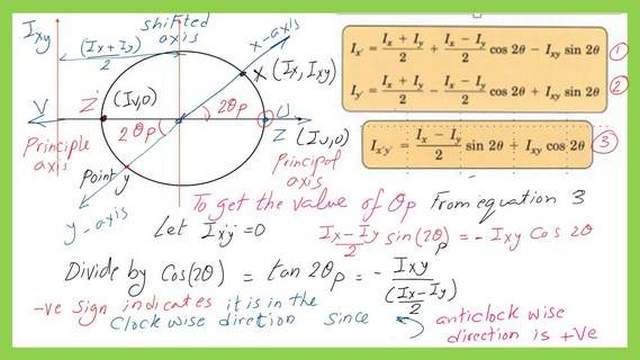 Ixy
shifted
axis
x-axis
(Ix+Iy)
2
X (Ix, Ixy)
V
Z'
(Iv,0)
2θp
2θp
U
Z (Iu,0)
Principle
axis
Principal
axis
Point y
y-axis
Ix' = Ix + Iy / 2 + Ix − Iy / 2 cos 2θ − Ixy sin 2θ
1
Iy' = Ix + Iy / 2 − Ix − Iy / 2 cos 2θ + Ixy sin 2θ
2
Ix'y' = Ix − Iy / 2 sin 2θ + Ixy cos 2θ
3
To get the value of θp From equation 3
Let Ix'y' = 0
Ix-Iy / 2 sin(2θp) = - Ixy Cos 2θ
Divide by Cos(2θ) = tan 2θp = - Ixy / (Ix-Iy / 2)
-ve sign indicates it is in the
Clock wise direction since
anticlock wise
direction is +Ve